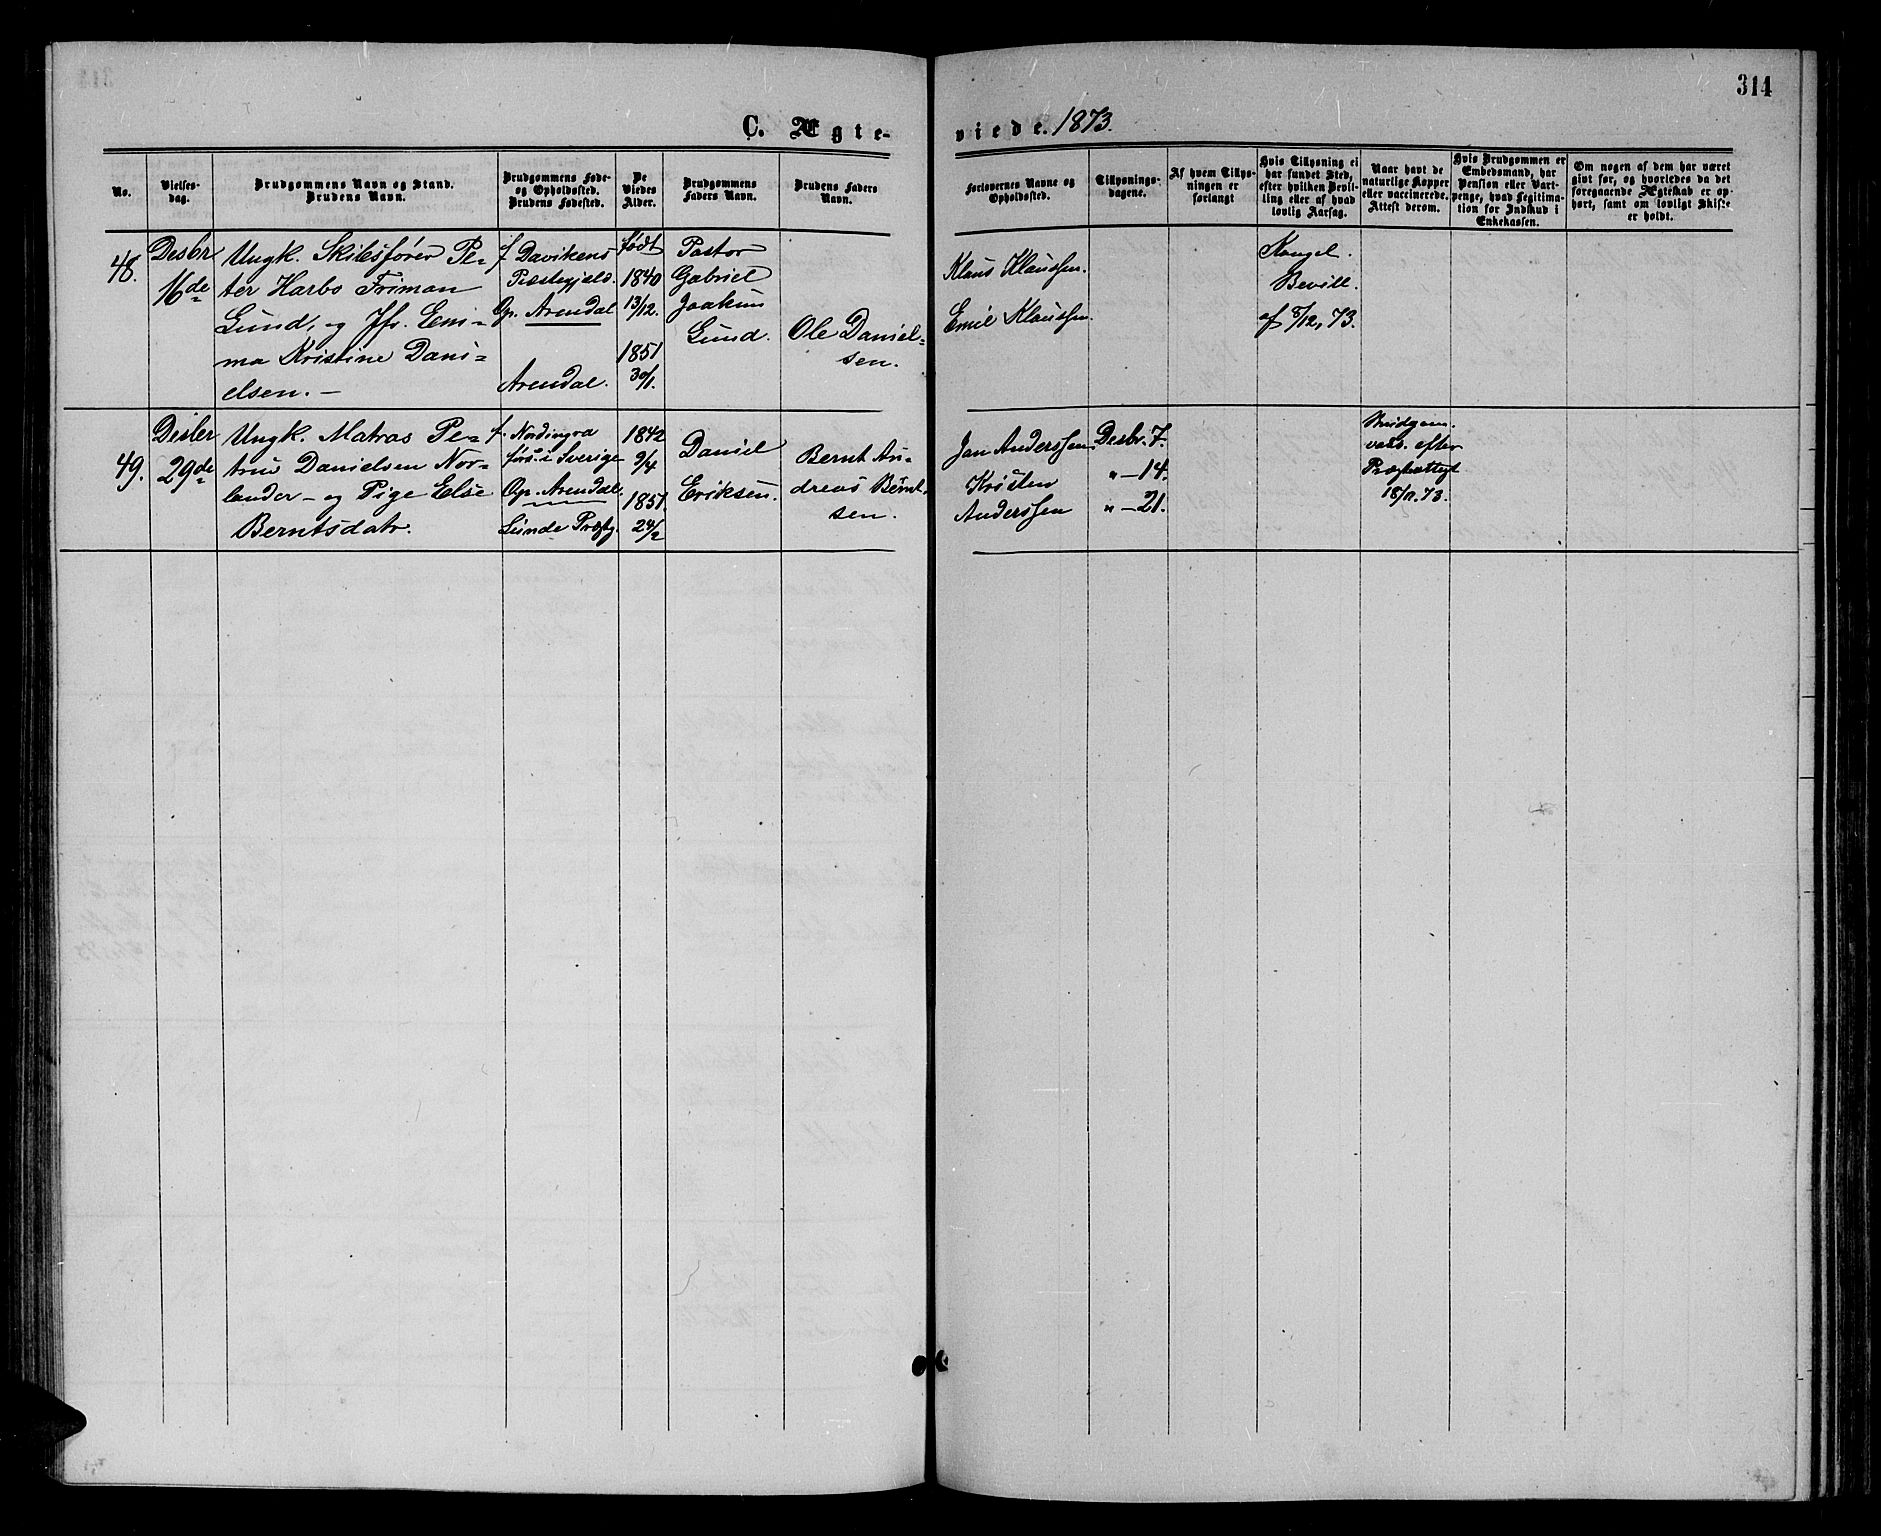 314
C. Ægte-
viede. 1873.
No.
Vielses-
dag.
Brudgommens Navn og Stand.
Brudens Navn.
Brudgommens Føde-
og Opholdssted.
Brudens Fødested.
De
Viedes
Alder.
Brudgommens
Faders Navn.
Brudens Faders
Navn.
Forlovernes Navne og
Opholdssted.
Tillysnings-
dagene.
Af hvem Tillys-
ningen er
forlangt
Hvis Tillysning ei
har fundet Sted,
efter hvilken Bevil-
ling eller af hvad
lovlig Aarsag.
Naar havt de
naturlige Kopper
eller vaccinerede.
Attest derom.
Hvis Brudgommen er
Embedsmand, har
Pension eller Vart-
penge, hvad Legitima-
tion for Indskud i
Enkekassen.
Om nogen af dem har været
givt før, og hvorledes da det
foregaaende Ægteskab er op-
hørt, samt om lovligt Skifte
er holdt.
48.
Desbr
16de
Ungk. Skibsfører Pe-
ter Harbo Friman
Lund, og Jfr. Em-
ma Kristine Dani-
elsen. -
f. Davikens
Præstegjeld.
Op. Arendal
Arendal.
født
1840
13/12.
1851
30/1.
Pastor
Gabriel
Joakim
Lund.
Ole Daniel-
sen.
Klaus Klaussen.
Emil Klaussen.
Kongel.
Bevill.
af 8/12, 73.
49.
Desber
29de
Ungk. Matros Pe-
trus Danielsen Nor-
lander - og Pige Else
Berntsdatr.
f. Nordingra
førs. i Sverige
Op. Arendal.
Lunde Præstg.
1842
9/4
1851.
24/2
Daniel
Eriksen.
Bernt An-
dreas Bernt-
sen.
Jan Anderssen
Kristen
Anderssen
Desbr. 7.
" - 14.
" - 21.
Brudgom.
vacc. efter
Præsteattest
18/11. 73.